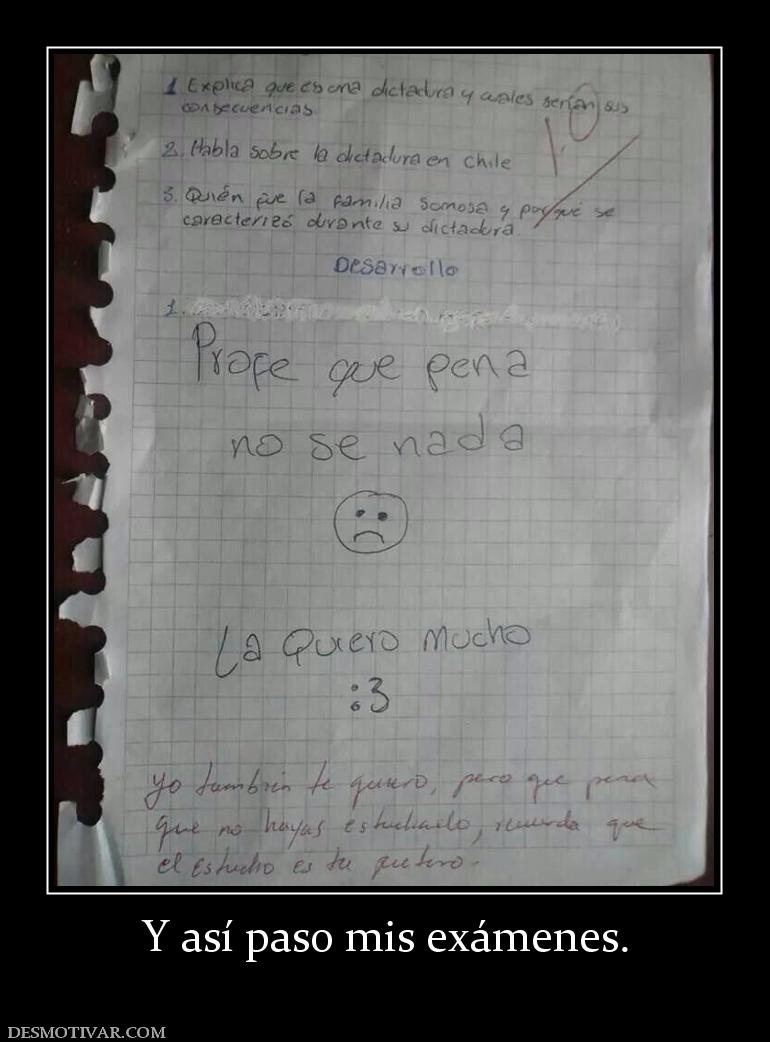 1. Explica que es una dictadura y cuales serían sus
consecuencias.
2. Habla sobre la dictadura en chile
3. Quién fue la familia somosa y por qué se
caracterizó durante su dictadura.
Desarrollo
1.
Profe que pena
no se nada
La Quiero mucho
:3
yo también te quiero, pero que pena
que no hayas estudiado, recuerda que
el estudio es tu futuro.
Y así paso mis exámenes.
DESMOTIVAR.COM